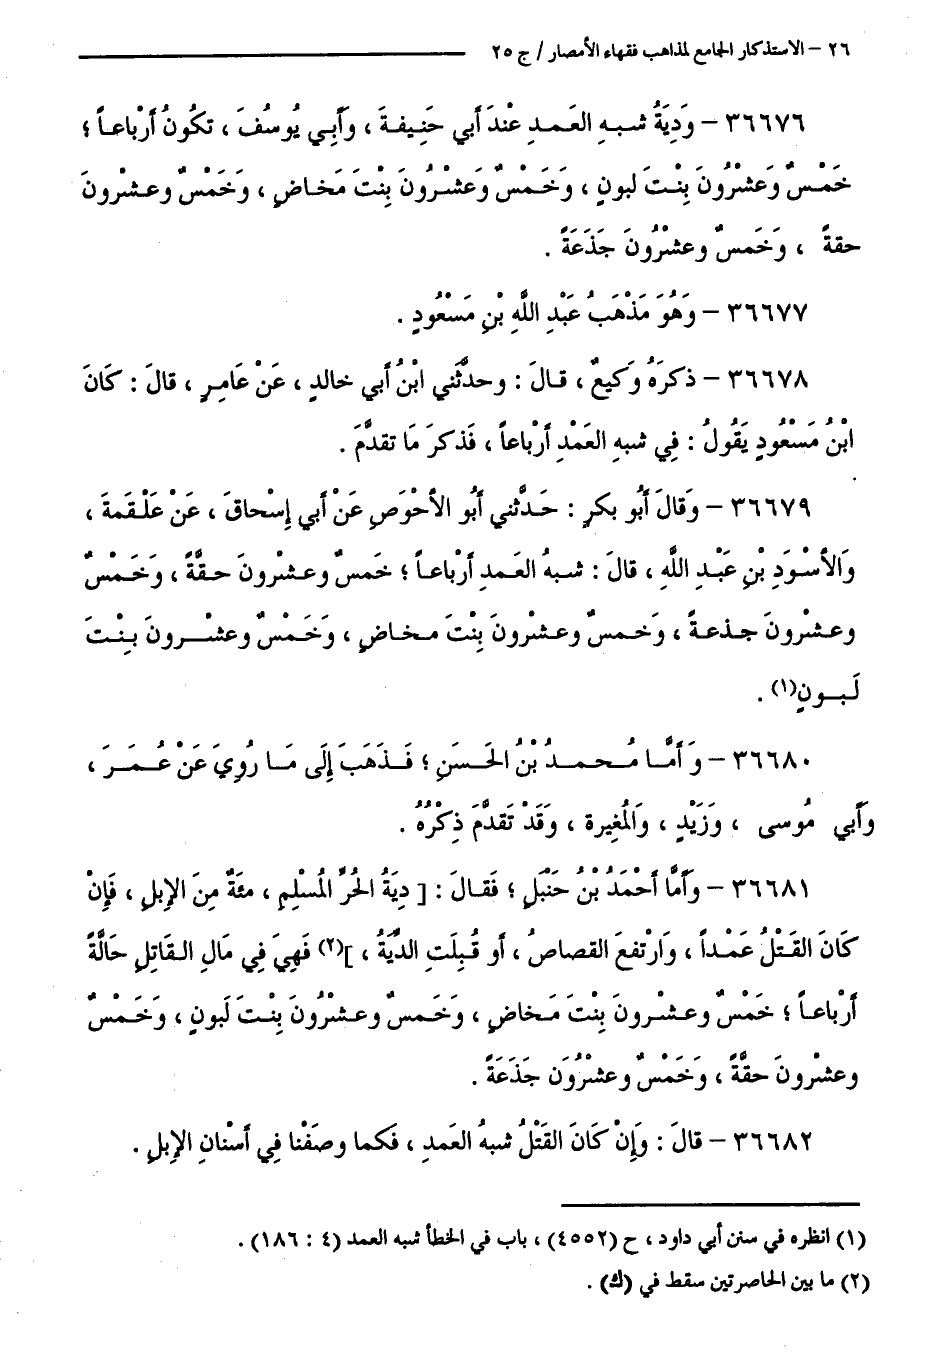 ٢٦ – الاستذكار الجامع لمذاهب فقهاء الأمصار / ج ٢٥
٣٦٦٧٦ – وَدِيَةُ شـبـهِ العَـمـدِ عِنْدَ أَبي حَنِيفـةَ ، وَأَبـي يُوسُفَ ، تكُونُ أَرْبـاعـاً ؛
خَمْـسٌ وَعشْرُونَ بِنْـتَ لبونٍ ، وَخَـمْسٌ وَعشْـرُونَ بِنْتَ مَخَاضٍ ، وَخَمْسٌ وعـشْرونَ
حقةً ، وَخَمسٌ وعشْرُونَ جَذَعَةً .
٣٦٦٧٧ – وَهُوَ مَذْهَبُ عَبْدِ اللَّهِ بْنِ مَسْعُودٍ .
٣٦٦٧٨ – ذكرَهُ وَكيعٌ ، قـالَ : وحدَّثَني ابْنُ أَبي خالدٍ ، عَنْ عَامرٍ ، قالَ : كَانَ
ابْنُ مَسْعُودٍ يَقُولُ : فِي شبهِ العَمْدِ أَرْباعاً ، فَذكرَ مَا تقدَّمَ .
٣٦٦٧٩ – وَقالَ أَبُو بكرٍ : حَـدَّثني أَبُو الأَحْوَصِ عَنْ أَبي إِسْحاقَ ، عَنْ عَلْـقمةَ ،
وَالأَسْـوَدِ بْنِ عَبْـدِ اللَّهِ ، قالَ : شـبـهُ العَـمدِ أَرْبْاعـاً ؛ خَمسٌ وعـشْرونَ حـقَّةً ، وَخَـمْسٌ
وعـشْرونَ جـذعـةً ، وَخـمسٌ وعـشْرونَ بِنْتَ مـخـاضٍ ، وَخَـمْسٌ وعشْـــرونَ بـنْـتَ
لَـبــونٍ(١) .
٣٦٦٨٠ – وَأَمَّـا مُـحـمـدُ بْنُ الحَـسَنِ ؛ فَـذهَبَ إِلَى مَـا رُوِيَ عَنْ عُـمَـرَ ،
وَأَبي مُوسى ، وَزَيْدٍ ، وَالمُغيرة ، وَقَدْ تَقدَّمَ ذِكْرُهُ .
٣٦٦٨١ – وَأَمَّا أَحْمَدُ بْنُ حَنْبَلٍ ؛ فَقـالَ : [ دِيَةُ الحُرِّ المُسْلمِ ، مئَةٌ مِنَ الإِبلِ ، فَإِنْ
كَانَ القَـتْلُ عَمْـداً ، وَارْتفعَ القصاصُ ، أَو قُـبِلَتِ الدِّيَةُ ، ](٢) فَهِيَ فِي مَالِ القَاتلِ حَالَّةً
أَرْباعـاً ؛ خَمْسٌ وعـشْـرونَ بنْتَ مَـخاضٍ ، وَخَـمسٌ وعشْرُونَ بنْـتَ لَبونٍ ، وَخَـمْسٌ
وعشْرونَ حقَّةً ، وَخَمْسٌ وعشْرُونَ جَذَعَةً .
٣٦٦٨٢ – قالَ : وَإِنْ كَانَ القَتْلُ شبهُ العَمد ، فَكما وصَفْنا فِي أَسْنانِ الإِبلِ .
(١) انظره في سنن أبي داود ، ح (٤٥٥٢) ، باب في الخطأ شبه العمد (٤ : ١٨٦) .
(٢) ما بين الحاصرتين سقط في (ك) .